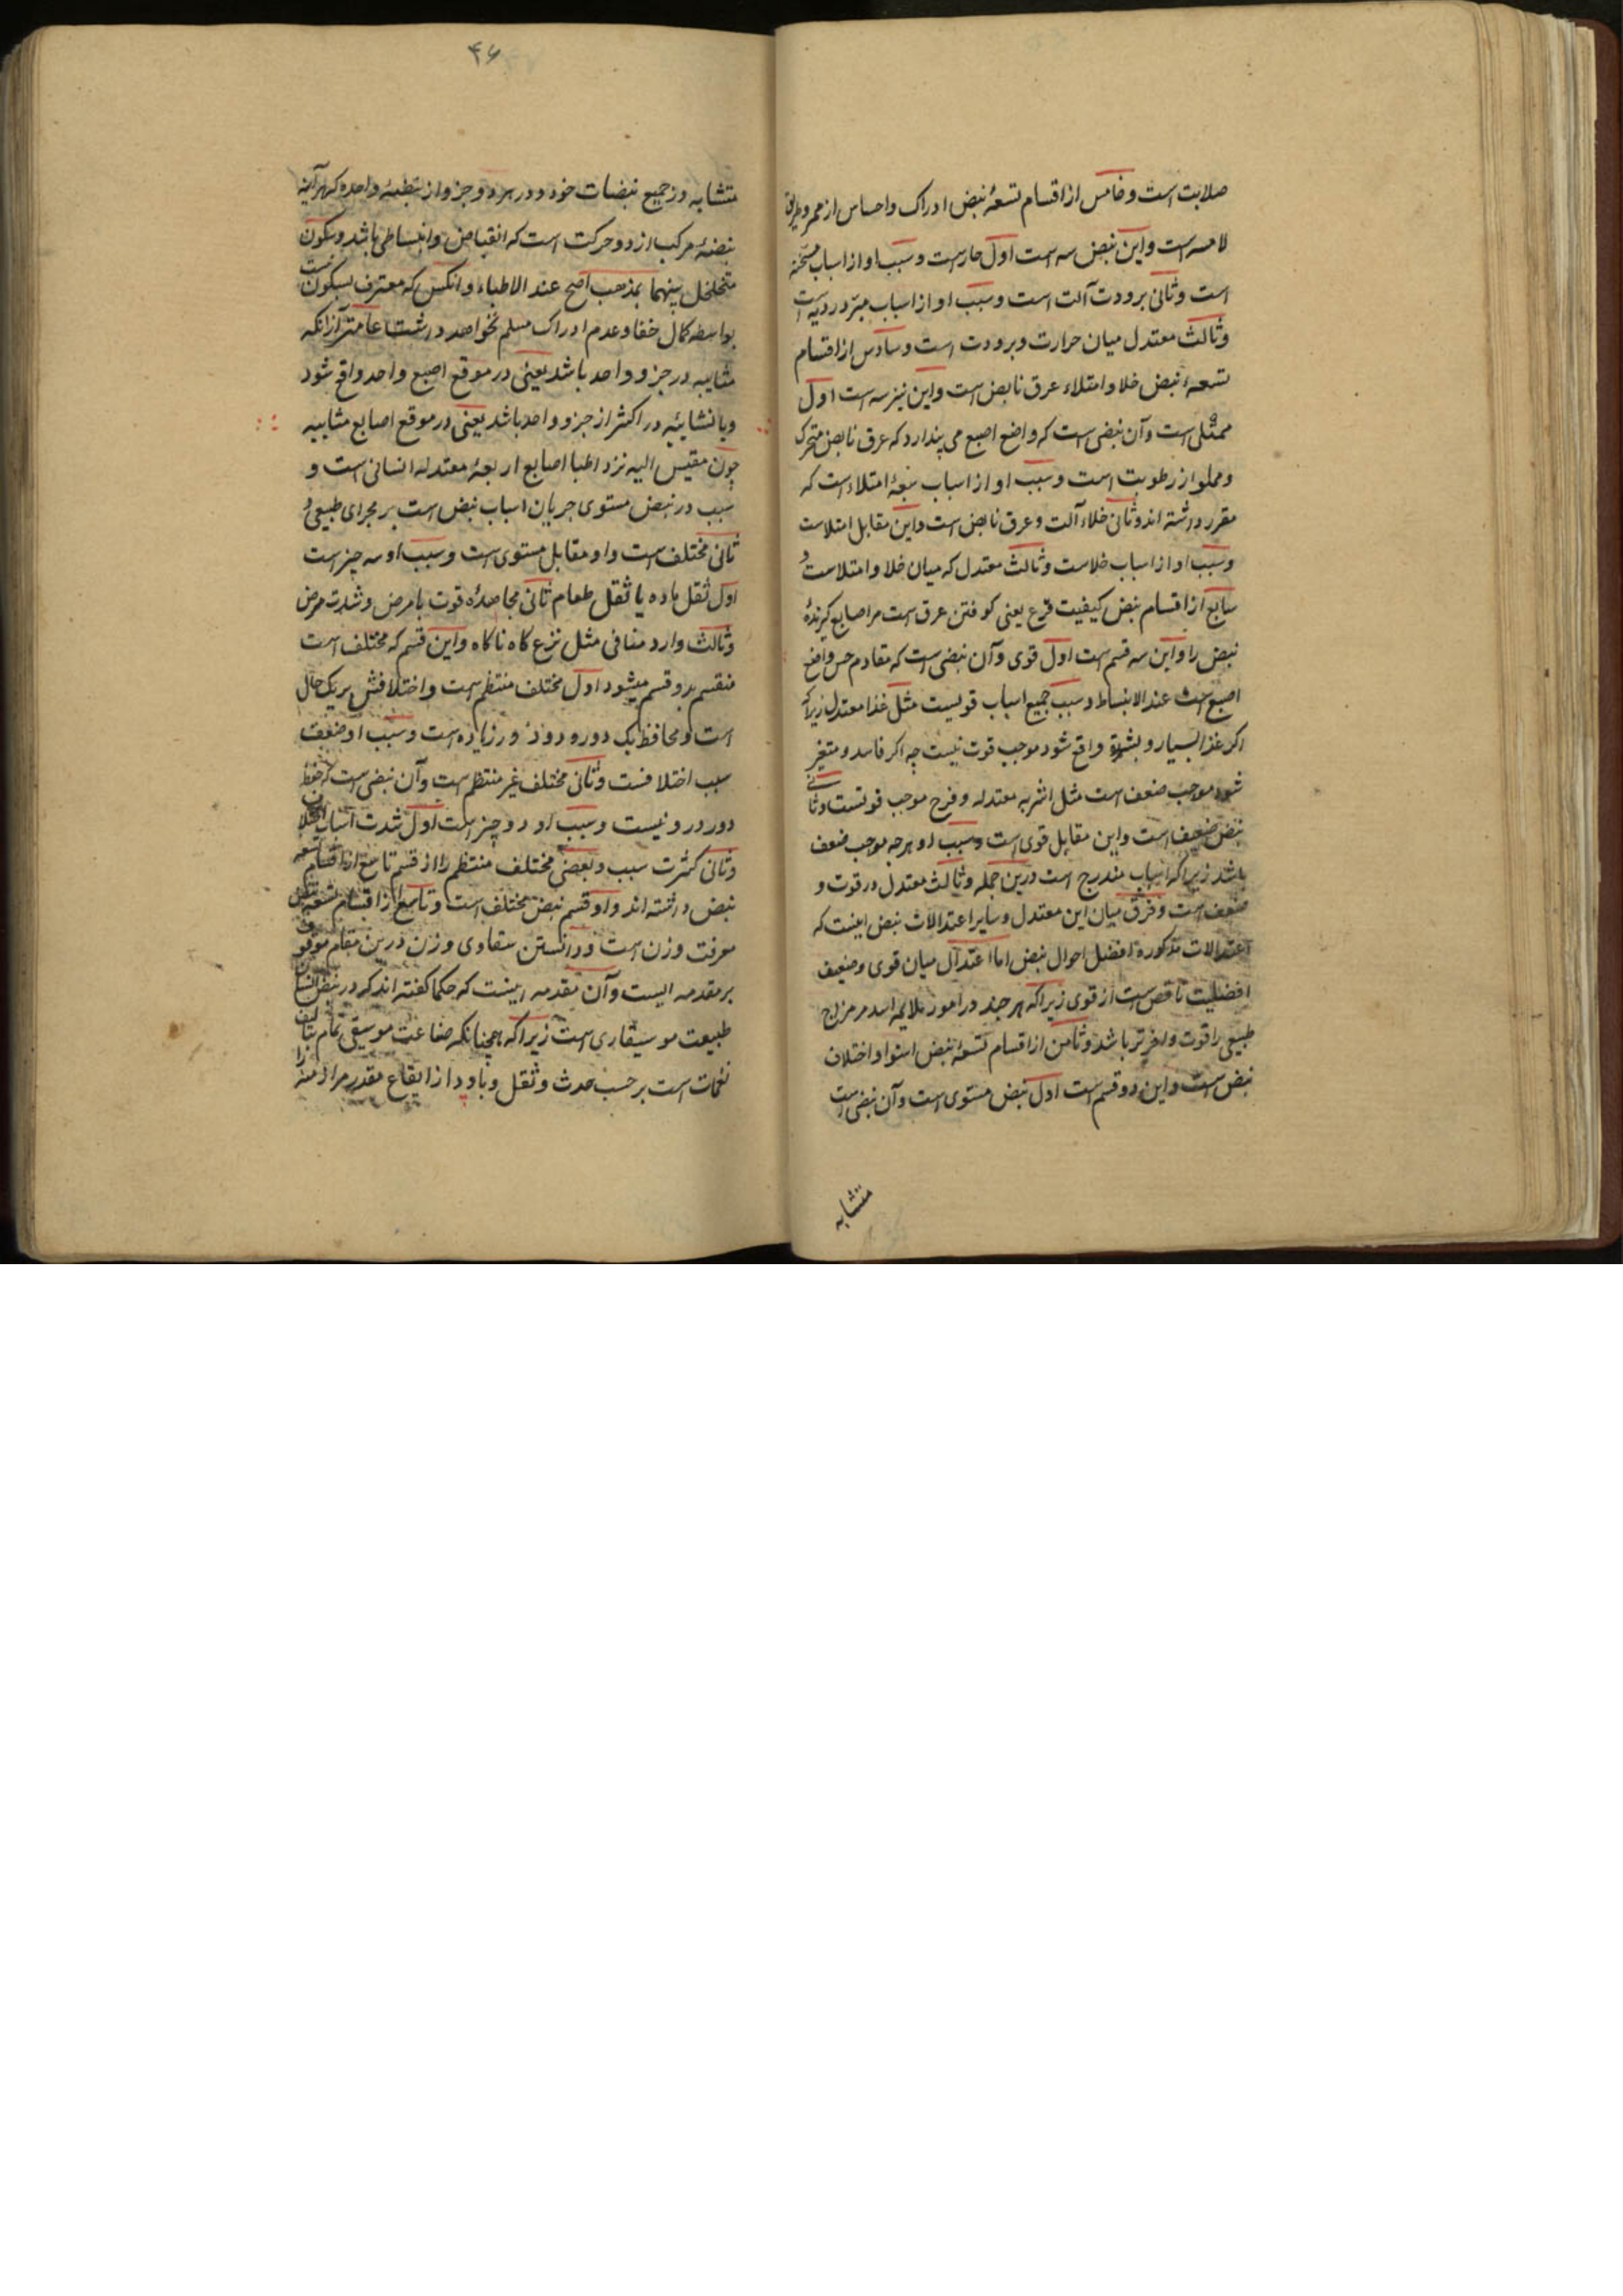 صلابت است و خامس از اقسام تسعهٔ نبض ادراک و احساس از ممر و طریق
لامسه است و این نبض سه است اول حار است و سبب او از اسباب مسخنه
است و ثانی برودت آلت است و سبب او از اسباب مبرد ردیه است
و ثالث معتدل میان حرارت و برودت است و سادس از اقسام
تسعهٔ نبض خلا و امتلاء عرق نابض است و این نیز سه است اول
ممتلی است و آن نبضی است که واضع اصبع می پندارد که عرق نابض متحرک
و مملو از رطوبت است و سبب او از اسباب امتلاء است که
مقرر داشته اند و ثانی خلاء آلت و عرق نابض است و این مقابل امتلاست
و سبب او از اسباب خلاست و ثالث معتدل که میان خلا و امتلاست و
سابع از اقسام نبض کیفیت قرع یعنی کوفتن عرق است مر اصابع گیرندهٔ
نبض را و این سه قسم است اول قوی و آن نبضی است که مقاوم حس واضع
اصبع است عند الانبساط و سبب جمیع اسباب قویست مثل غذا معتدل زیراکه
اکر غذا بسیار و بشدة واقع شود موجب قوت نیست چه اکر فاسد و متغیر
شود موجب ضعف است مثل اشربه معتدله و فرح موجب قوتست و ثانی
نبض ضعیف است و این مقابل قوی است و سبب او هرچه موجب ضعف
باشد زیراکه اسباب مندرج است درین جمله و ثالث معتدل در قوت و
ضعف است و فرق میان این معتدل و سایر اعتدالات نبض اینست که
اعتدالات مذکوره افضل احوال نبض اما اعتدال میان قوی و ضعیف
افضلیت ناقص است از قوی زیراکه هر چند در امور ملایمه اسد مر مزاج
طبیعی را قوت وافرتر باشد و ثامن از اقسام تسعهٔ نبض استوا و اختلاف
نبض است و این دو قسم است اول نبض مستوی است و آن نبضی است
متشابه
۴۶
متشابه در جمیع نبضات خود و در هر دو جزو از نبضهٔ واحده که هر آینه
نبضهٔ مرکب از دو حرکت است که انقباض و انبساطی باشد و سکون
متخلخل بینهما بمذهب اصح عند الاطباء و انکس که معترف بسکون نیست
بواسطه کمال خفا و عدم ادراک مسلم نخواهد داشت عامتر از انکه
مشابهه در جزو واحد باشد یعنی در موقع اصبع واحد واقع شود
و یا تشابه در اکثر از جزو واحد باشد یعنی در موقع اصابع مشابهه
چون مقیس الیه نزد اطبا اصابع اربعهٔ معتدله انسانی است و
سبب در نبض مستوی جریان اسباب نبض است بر مجرای طبیعی و
ثانی مختلف است و او مقابل مستوی است و سبب او سه چیز است
اول ثقل ماده یا ثقل طعام ثانی مجاهدهٔ قوت با مرض و شدت مرض
و ثالث وارد منافی مثل نزع کاه ناکاه و این قسم که مختلف است
منقسم بدو قسم میشود اول مختلف منتظم است و اختلافش بر یک حال
است و محافظ یک دور و دو دور زیاده است و سبب او ضعیف
سبب اختلافست و ثانی مختلف غیر منتظم است و آن نبضی است که حفظ
دور در او نیست و سبب او دو چیز است اول شدت اسباب اختلاف
و ثانی کثرت سبب و بعضی مختلف منتظم را از قسم تاسع از اقسام تسعه
نبض داشته اند و او قسم نبض مختلف است و تاسع از اقسام تسعه نبض
معرفت وزن است و دانستن مقاوی وزن درین مقام موقوف
بر مقدمه ایست و آن مقدمه اینست که حکما کفته اند که در نبض انسان
طبیعت موسیقاری است زیراکه همچنانکه صناعت موسیقی تمام بتالیف
نغمات است بر حسب حدت و ثقل و باودا از ایقاع مقدر مر ازمنه را